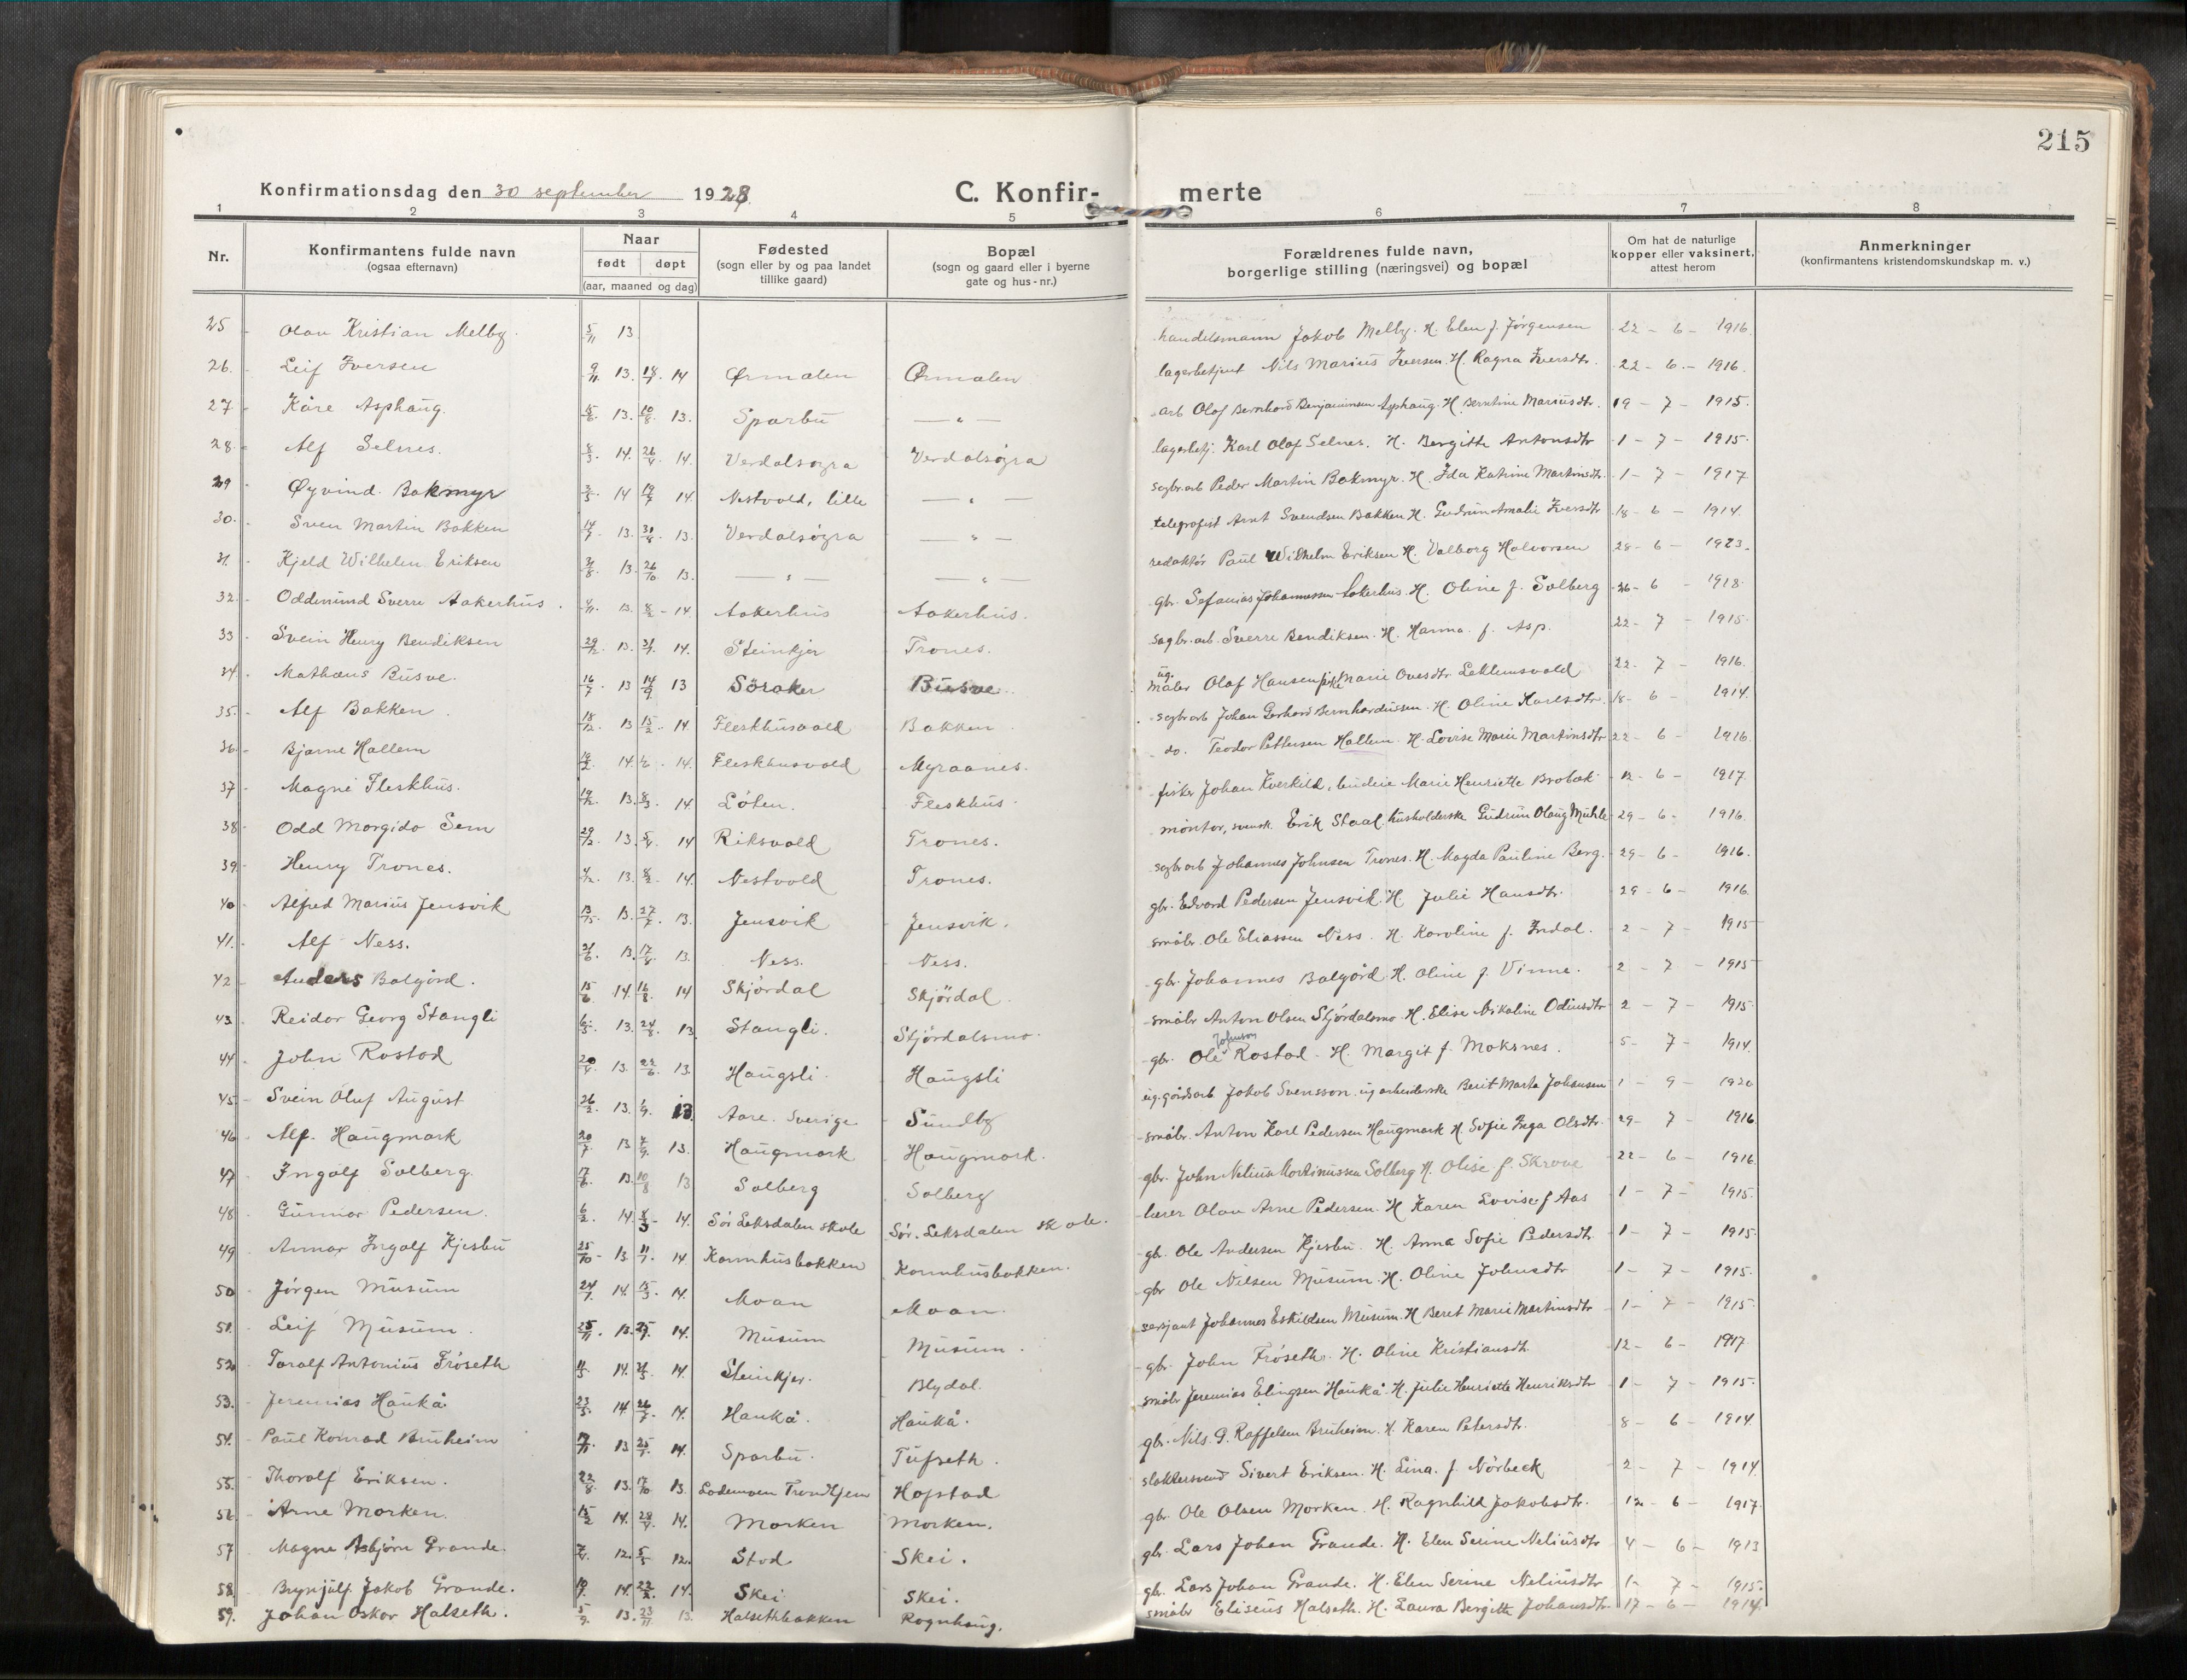 215
Konfirmationsdag den 30 september 1928. C. Konfir- merte
1 2 3 4 5 6 7 8
Nr. Konfirmantens fulde navn (ogsaa efternavn) Naar født døpt (aar, maaned og dag) Fødested (sogn eller by og paa landet tillike gaard) Bopæl (sogn og gaard eller i byerne gate og hus-nr.) Forældrenes fulde navn, borgerlige stilling (næringsvei) og bopæl Om hat de naturlige kopper eller vaksinert, attest herom Anmerkninger (konfirmantens kristendomskundskap m. v.)
25 Olav Kristian Melby. 5/11 13 handelsmann Jakob Melby. H. Elen f. Jörgensen 22 - 6 - 1916.
26. Leif Iversen 9/11 13. 18/7 14 Ørmelen Ørmelen lagerbetjent Nils Marius Iversen. H. Ragna Iversdtr. 22 - 6 - 1916.
27 Kåre Asphaug. 13. 10/8 13. Sparbu — " — arb Olaf Bernhard Benjaminsen Asphaug. H. Berntine Mariusdtr. 19 - 7 - 1915.
28. Alf Selnes. 8/3 14. 26/4 14. Verdalsøra Verdalsøra lagerbetj. Karl Olaf Selnes. H. Bergitte Antonsdtr 1 - 7 - 1915.
29 Øyvind Bakmyr 14 19/7 14 Nestvold, lille — " — sagbr.arb Peder Martin Bakmyr. H. Ida Katrine Martinsdtr. 1 - 7 - 1917
30. Sven Martin Bakken 14/7 13. 31/8 13. Verdalsøra — " — telegrafist Arnt Svendsen Bakken H. Gudrun Amalie Iversdtr 18 - 6 - 1914.
31. Kjeld Wilhelm Eriksen 13. 26/10 13. — " — — " — redaktör Paul Wilhelm Eriksen H. Valborg Halvorsen 28 - 6 - 1923.
32. Oddmund Sverre Aakerhus. 4/11 13. 8/2 - 14 Aakerhus Aakerhus. gbr. Sefanias Johannessen Aakerhus. H. Oline f. Solberg 26 - 6 - 1918.
33 Svein Henry Bendiksen 29/12 13. 14. Steinkjer Trones. sagbr.arb. Sverre Bendiksen. H. Hanna f. Asp. 22 - 7 - 1915.
34. Mathæus Busve. 16/7 13 14/9 13 Söraker Busve ug. maler Olaf Hansen, pike Marie Ovesdtr Leklemsvald 22 - 7 - 1916.
35. Alf Bakken. 18/12 13 15/2 14. Fleskhusvald Bakken sagbr.arb Johan Gerhard Bernhardussen. H. Oline Karlsdtr. 18 - 6 - 1914.
36. Bjarne Hallem 14. 14. Fleskhusvald Myraanes. do. Teodor Pettersen Hallem. H. Lovise Marie Martinsdtr 22 - 6 - 1916.
37 Magne Fleskhus. 19/12 13. 8/3 14. Löten. Fleskhus. fisker Johan Kverkild, budeie Marie Henriette Brobak. 12 - 6 - 1917.
38. Odd Margido Sem 29/12 13. 14 Riksvold Trones. montör, svensk Erik Staal, husholderske Gudrun Olaug Mühle 29 - 6 - 1916.
39. Henry Trones. 13. 8/2 14. Nestvold Trones. sagbr.arb Johannes Johnsen Trones. H. Magda Pauline Berg. 29 - 6 - 1916.
40 Alfred Marius Jensvik 13. 27/7 13. Jensvik Jensvik. gbr. Edvard Pedersen Jensvik. H Julie Hansdtr. 29 - 6 - 1916
41. Alf Ness. 13. 17/8 13. Ness. Ness. småbr. Ole Eliassen Ness. H. Karoline f. Indal. 2 - 7 - 1915
42 Anders Balgård. 15/6 14. 16/8 14 Skjördal Skjördal. gbr. Johannes Balgård. H. Oline f. Vinne. 2 - 7 - 1915
43. Reidar Georg Stangli 6/5 13. 24/8 13. Stangli. Stjördalsmo. småbr Anton Olsen Stjördalsmo. H. Elise Nikoline Odinsdtr 2 - 7 - 1915.
44 John Rostad 20/4 13. 22/6 13. Haugsli Haugsli gbr. Ole Johnson Rostad. H. Margit f. Moksnes. 5 - 7 - 1914.
45 Svein Oluf August 26/2 13. 1/9 13. Aare. Sverige Sundby ug. gårdsarb Jakob Svensson. ug arbeiderske Berit Marta Johansen 1 - 9 - 1920
46 Alf Haugmark 20/7 13 7/9 13. Haugmark Haugmark. småbr. Anton Karl Pedersen Haugmark H. Sofie Inga Olsdtr. 29 - 7 - 1916
47 Ingolf Solberg. 17/6 13. 10/8 13 Solberg Solberg gbr. John Nelius Martinussen Solberg H. Olise f. Skrove 22 - 6 - 1916.
48 Gunnar Pedersen. 6/2 14. 8/3 14. Sör Leksdalen skole Sör. Leksdalen skole. lærer Olav Arne Pedersen. H Karen Lovise f Aas 1 - 7 - 1915.
49 Annar Ingolf Kjesbu 25/10 13. 11/1 14. Kornhusbakken Kornhusbakken. gbr. Ole Andersen Kjesbu. H. Anna Sofie Pedersdtr. 1 - 7 - 1915.
50 Jörgen Musum 24/1 14. 15/3 14. Moan Moan. gbr Ole Nilsen Musum. H. Oline Johnsdtr 1 - 7 - 1915.
51. Leif Musum. 25/11 13. 14. Musum Musum. sersjant Johannes Eskildsen Musum. H Beret Marie Martinsdtr 1 - 7 - 1915.
52. Toralf Antonius Fröseth 14. 14. Steinkjer. Blydal. gbr. John Fröseth. H. Oline Kristiansdtr 12 - 6 - 1917.
53. Jeremias Haukå 23/5 14. 26/7 14. Haukå. Haukå. småbr Jeremias Elingsen Haukå. H. Julie Henriette Henriksdtr 1 - 7 - 1915.
54. Paul Konrad Bruheim 17/11 13 25/1 14. Sparbu. Tufseth. gbr. Nils P. Roffelsen Bruheim. H. Karen Petersdtr. 8 - 6 - 1914.
55. Thoralf Eriksen. 22/8 13. 17/10 13. Lademoen Trondhjem Hofstad slaktersvend Sivert Eriksen. H. Lina f Nörbeck 2 - 7 - 1914.
56. Arne Morken. 15/2 14. 28/4 14. Morken Morken. gbr. Ole Olsen Morken. H. Ragnhild Jakobsdtr. 12 - 6 - 1917.
57 Magne Asbjörn Grande. 12. 5/5 12. Stod Skei. gbr. Lars Johan Grande. H. Elen Serine Neliusdtr 4 - 6 - 1913
58. Brynjulf Jakob Grande. 14. 14. Skei Skei. gbr. Lars Johan Grande. H. Elen Serine Neliusdtr 1 - 7 - 1915.
59. Johan Oskar Halseth. 5/9 13. 23/11 13. Halsethbakken Rognhaug. småbr Eliseus Halseth. H. Laura Bergitte Johansdtr. 17 - 6 - 1914.